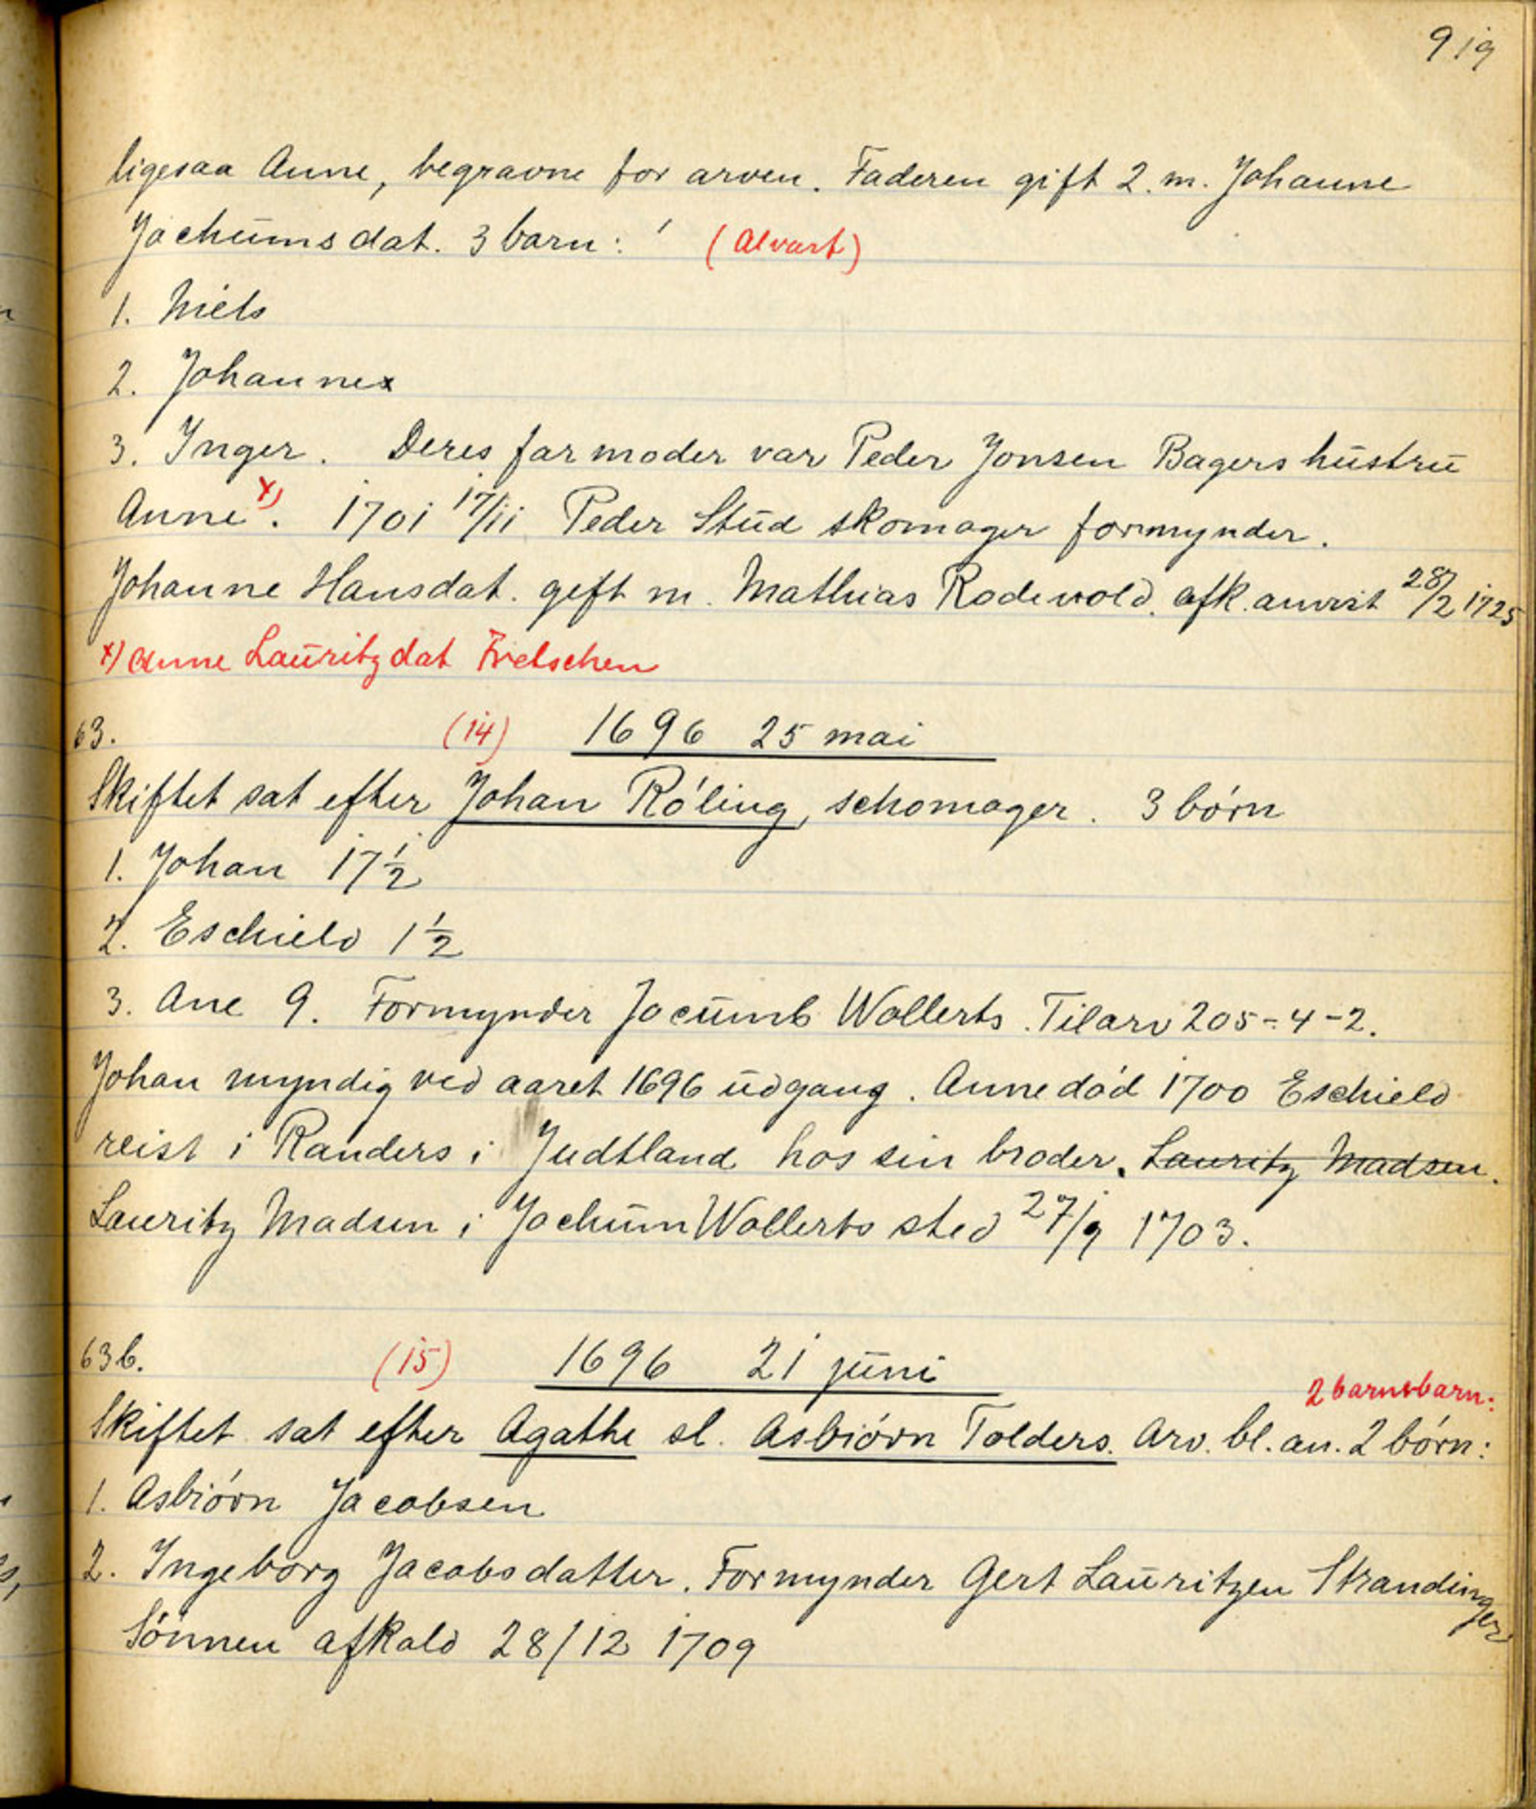 919
ligesaa Anne, begravne for arven. Faderen gift 2. m. Johanne
Jochumsdat. 3 barn: (Alvart)
1. Niels
2. Johannex
3. Inger. Deres farmoder var Peder Jonsen Bagers hustru
Anne x). 1701 17/11 Peder Stud skomager formynder.
Johanne Hansdat. gift m. Mathias Rodevold. afk. anvist 28/2 1725
x) Anne Lauritzdat Frelschen
63. (14) 1696 25 mai
Skiftet sat efter Johan Róling, schomager. 3 börn
1. Johan 17 1/2
2. Eschield 1 1/2
3. Ane 9. Formynder Jocumb Wollerts. Tilarv 205-4-2.
Johan myndig ved aaret 1696 udgang. Anne död 1700 Eschield
reist i Randers i Judtland hos sin broder. Lauritz Madsen.
Lauritz Madsen i Jochum Wollerts sted 27/9 1703.
63b. (15) 1696 21 juni
2 barnebarn:
Skiftet sat efter Agathe sl. Asbiörn Tolders. Arv. bl. an. 2 börn:
1. Asbiörn Jacobsen
2. Ingeborg Jacobsdatter. Formynder Gert Lauritzen Strandinger
Sönnen afkald 28/12 1709